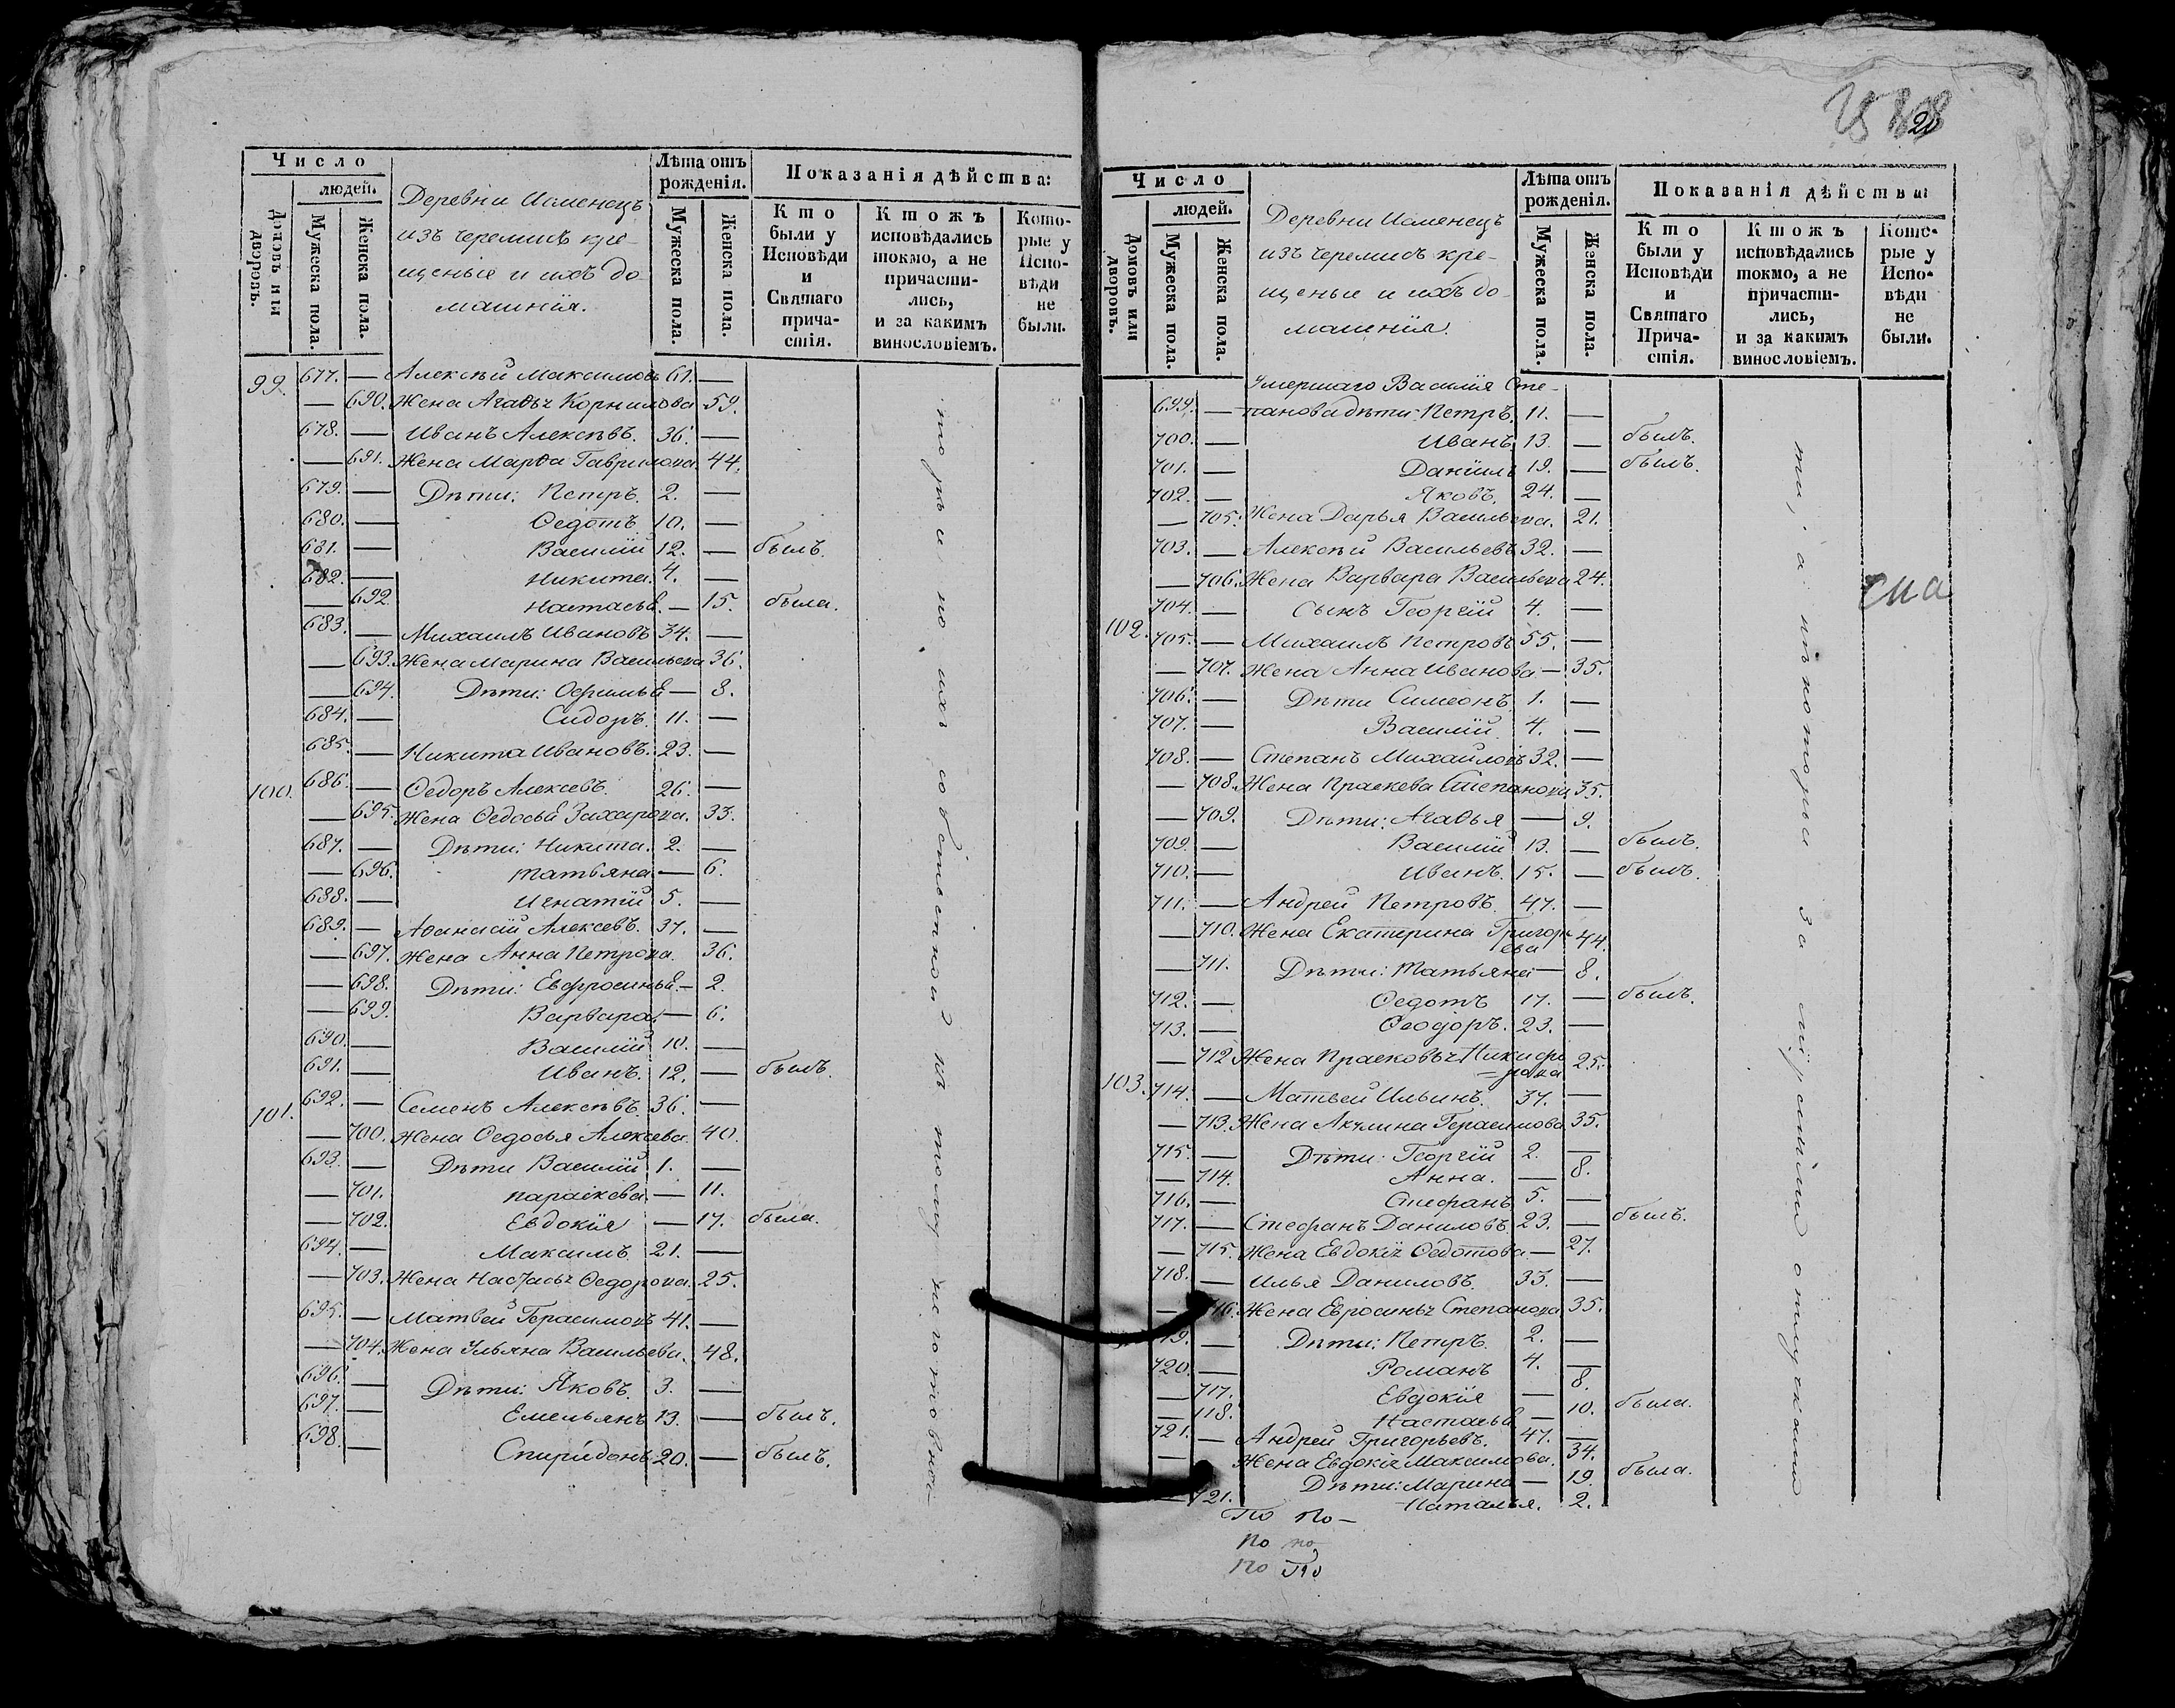 Число
людей.
Домовъ или дворовъ.
Мужеска пола.
Женска пола.
Деревни Исменецъ
изъ черемисъ кре-
щеные и ихъ до-
машнiя.
Лѣта отъ рожденiя.
Мужеска пола.
Женска пола.
Показанiя дѣйства:
Кто были у Исповѣди и Святаго причастiя.
Ктожъ исповѣдались токмо, а не причастились, и за какимъ винословiемъ.
Которые у Исповѣди не были.
99. 677. — Алексѣй Максимовъ 61. —
— 690. Жена Агаѳья Корнилова 59.
678. — Иванъ Алексѣвъ. 36. —
— 691. Жена Марѳа Гаврилова 44.
679. — Дѣти: Петръ. 2. —
680. — Ѳедотъ 10. —
681. — Василiй 12. — былъ.
682. — Никита. 4. —
— 692. Настасья. — 15. была.
683. — Михаилъ Ивановъ 34. —
— 693. Жена Марина Васильева 36.
— 694. Дѣти: Ѳ — 8.
684. — Сидоръ. 11. —
685. — Никита Ивановъ. 23. —
100. 686. — Ѳедоръ Алексевъ. 26. —
— 695. Жена Ѳедосья Захарова. 33.
687. — Дѣти: Никита. 2. —
— 696. Татьяна — 6.
688. — Игнатiй 5. —
689. — Аѳанасiй Алексевъ. 37. —
— 697. Жена Анна Петрова. 36.
— 698. Дѣти: Евфросинья. — 2.
— 699. Варвара. — 6.
690. — Василiй 10. —
691. — Иванъ. 12. — былъ.
101. 692. — Семенъ Алексѣвъ. 36. —
— 700. Жена Ѳедосья Алексева. 40.
693. — Дѣти Василiй 1. —
— 701. Параскева. — 11.
— 702. Евдокiя — 17. была.
694. — Максимъ 21. —
— 703. Жена Настасья Ѳедорова. 25.
695. — Матвей Герасимовъ 41. —
— 704. Жена Ульяна Васильева. 48.
696. — Дѣти: Яковъ. 3. —
697. — Емельянъ 13. — былъ.
698. — Спиридонъ 20. — былъ.
ихъ собственной къ тому не готовно-
Число
людей.
Домовъ или дворовъ.
Мужеска пола.
Женска пола.
Деревни Исменецъ
изъ черемисъ кре-
щеные и ихъ до-
машнiя.
Лѣта отъ рожденiя.
Мужеска пола.
Женска пола.
Показанiя дѣйства:
Кто были у Исповѣди и Святаго Причастiя.
Ктожъ исповѣдались токмо, а не причастились, и за какимъ винословiемъ.
Которые у Исповѣди не были.
Умершаго Василiя Сте-
699. — панова дѣти Петръ. 11. —
700. — Иванъ 13. — былъ.
701. — Данiилъ 19. — былъ.
702. — Яковъ. 24. —
— 705. Жена Дарья Васильева. 21.
703. — Алексѣй Васильевъ 32. —
— 706. Жена Варвара Васильева 24.
704. — Сынъ Георгiй 4. —
102. 705. — Михаилъ Петровъ 55. —
— 707. Жена Анна Иванова — 35.
706. — Дѣти Симеонъ. 1. —
707. — Василiй. 4. —
708. — Степанъ Михайловъ 32. —
— 708. Жена Праскева Степанова 35.
— 709. Дѣти: Агаѳья — 9.
709. — Василiй 13. — былъ.
710. — Иванъ. 15. — былъ.
711. — Андрей Петровъ. 47. —
— 710. Жена Екатерина Григорь
ева 44.
— 711. Дѣти: Татьяна — 8.
712. — Ѳедотъ 17. — былъ.
713. — Ѳеодоръ. 23. —
— 712. Жена Прасковья Никифо
=рова 25.
103. 714. — Матвей Ильинъ. 37. —
— 713. Жена Акилина Герасимова 35.
715. — Дѣти: Георгiй 2. —
— 714. Анна. — 8.
716. — Стефанъ 5. —
717. — Стефанъ Даниловъ. 23. — былъ.
— 715. Жена Евдокiя Ѳедотова — 27.
718. — Илья Даниловъ. 33. —
— 716. Жена Евросинья Степанова 35.
19. — Дѣти: Петръ. 2. —
720. — Романъ 4. —
— 717. Евдокiя — 8.
— 118. Настасья — 10. была.
721. — Андрей Григорьевъ. 47. —
— Жена Евдокiя Максимова. 34.
Дѣти: Марина — 19. была.
— 721. Наталья. 2.
сти, а нѣкоторые за отлучками
По По —
по по
по По